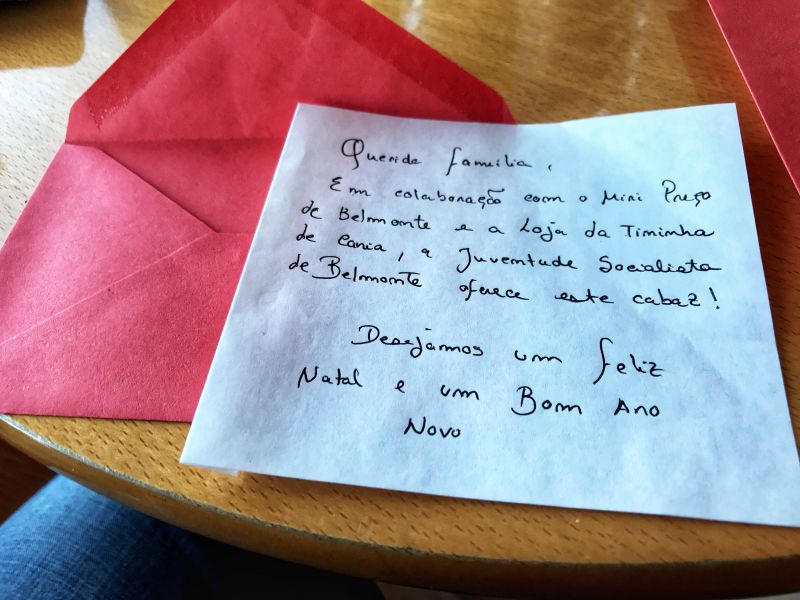 Querida família,
Em colaboração com o Mini Preço
de Belmonte e a Loja da Timinha
de Caria, a Juventude Socialista
de Belmonte oferece este cabaz!
Desejamos um feliz
Natal e um Bom Ano
Novo